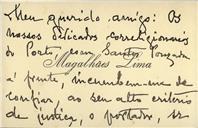 Meu querido amigo: Os
nossos dedicados correligionarios
do Porto, com Santos Pousada
Magalhães Lima
á frente, incumbem-me de
confiar ao seu alto criterio
de justiça, o portador, sr